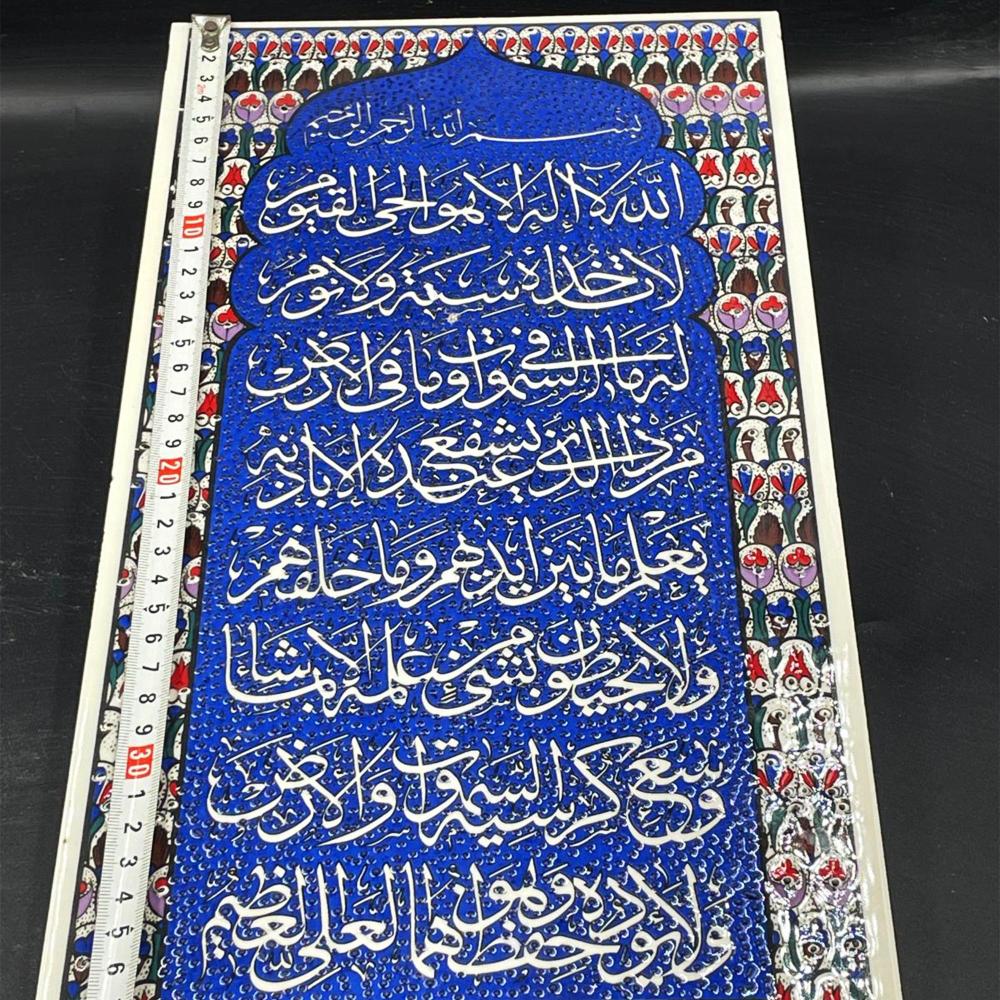 بسم الله الرحمن الرحيم
الله لا اله الا هو الحي القيوم
لا تاخذه سنة ولا نوم
له ما في السموات وما في الارض
من ذا الذي يشفع عنده الا باذنه
يعلم ما بين ايديهم وما خلفهم
ولا يحيطون بشئ من علمه الا بما شاء
وسع كرسيه السموات والارض
ولا يؤده حفظهما وهو العلي العظيم
2
3
4
5
6
7
8
9
10
1
2
3
4
5
6
7
8
9
20
1
2
3
4
5
6
7
8
9
30
1
2
3
4
5
6